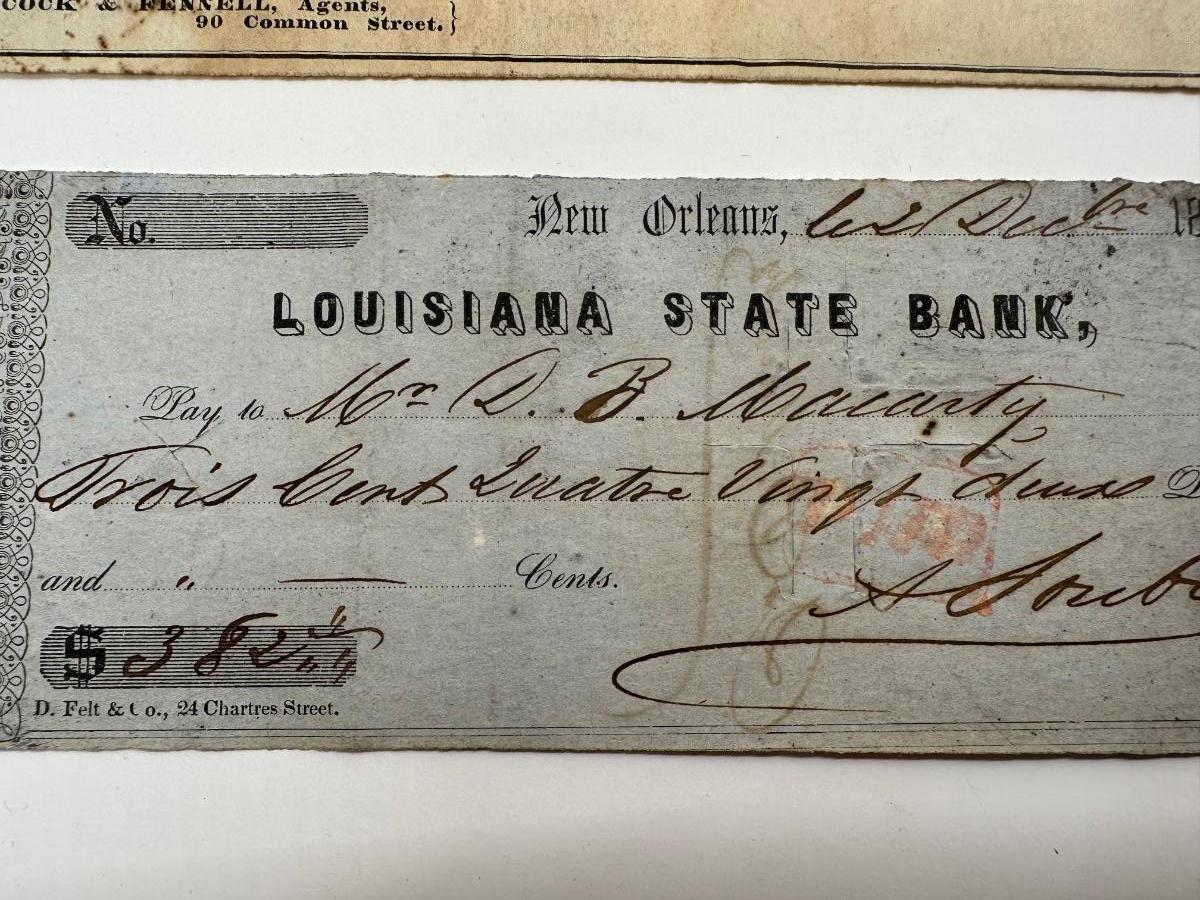 COCK & FENNELL, Agents,
90 Common Street.
No. New Orleans, le 2 Decbre 18
LOUISIANA STATE BANK,
Pay to Mr D. B. Macarty
Trois Cent Quatre Vingt deux D
and " — Cents.
A Soub
$ 382
D. Felt & Co., 24 Chartres Street.